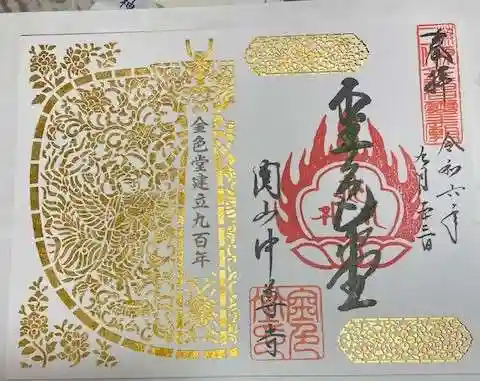 奉拝
令和六年
九月二十三日
金色堂
関山中尊寺
金色堂建立九百年